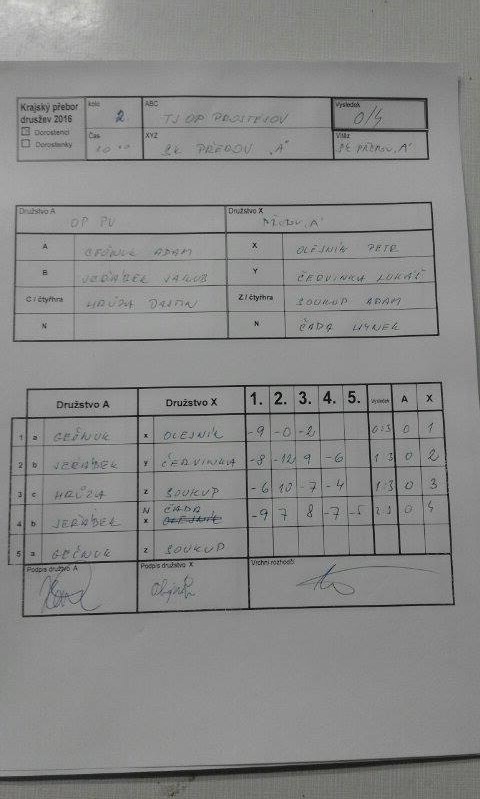 Krajský přebor kolo ABC Výsledek
družstev 2016 2 TJ OP PROSTĚJOV 0/4
Dorostenci
Dorostenky Čas XYZ Vítěz
SK PŘEROV „A" SK PŘEROV „A"
Družstvo A Družstvo X
OP PV PŘEROV „A"
A GEČNUK ADAM X OLEJNÍK PETR
B JEŘÁBEK JAKUB Y ČERVINKA LUKÁŠ
C / čtyřhra HRŮZA DUSTIN Z / čtyřhra SOUKUP ADAM
N N ČADA HYNEK
Družstvo A Družstvo X 1. 2. 3. 4. 5. Výsledek A X
1 a GEČNUK x OLEJNÍK -9 -0 -2 0:3 0 1
2 b JEŘÁBEK y ČERVINKA -8 -12 9 -6 1:3 0 2
3 c HRŮZA z SOUKUP -6 10 -7 -4 1:3 0 3
4 b JEŘÁBEK N ČADA -9 7 8 -7 -5 2:3 0 4
x OLEJNÍK
5 a GEČNUK z SOUKUP
Podpis družstvo A Podpis družstvo X Vrchní rozhodčí